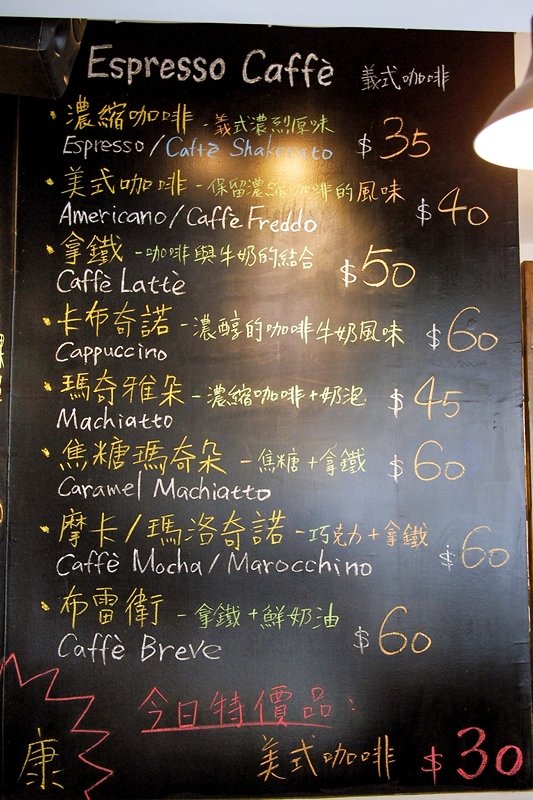 Espresso Caffè 義式咖啡
濃縮咖啡 - 義式濃烈原味
Espresso / Caffè Shakerato $35
美式咖啡 - 保留濃縮咖啡的風味
Americano / Caffè Freddo $40
拿鐵 - 咖啡與牛奶的結合
Caffè Lattè $50
卡布奇諾 - 濃醇的咖啡牛奶風味
Cappuccino $60
瑪奇雅朵 - 濃縮咖啡+奶泡
Machiatto $45
焦糖瑪奇朵 - 焦糖+拿鐵
Caramel Machiatto $60
摩卡/瑪洛奇諾 - 巧克力+拿鐵
Caffè Mocha / Marocchino $60
布雷衛 - 拿鐵+鮮奶油
Caffè Breve $60
今日特價品:
美式咖啡 $30
康